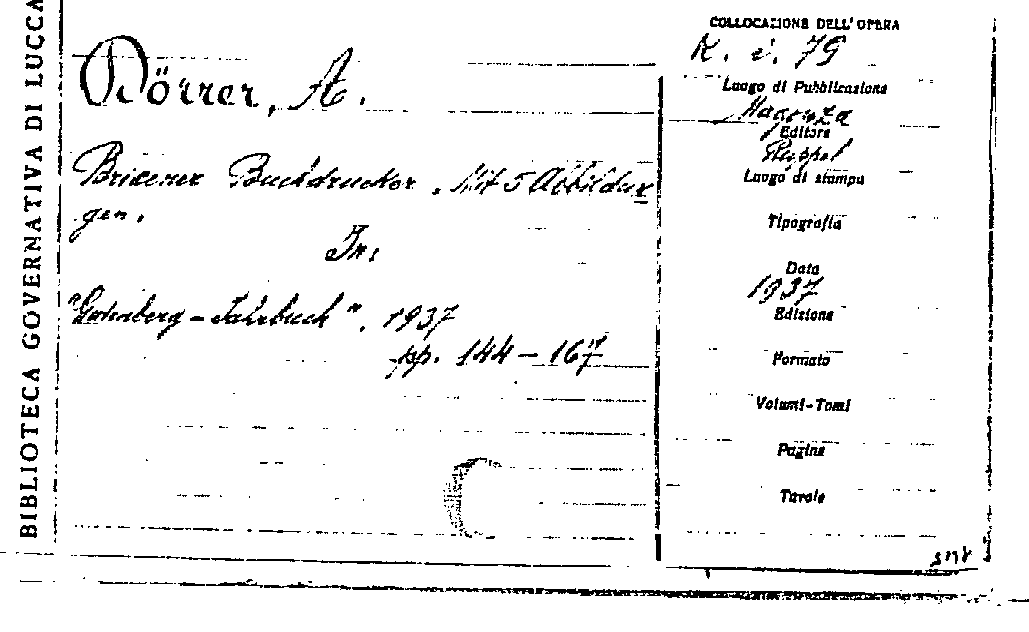 BIBLIOTECA GOVERNATIVA DI LUCCA
Dörrer, A.
Brixener Buchdrucker. Mit 5 Abbildun
gen.
In:
"Gutenberg - Jahrbuch", 1937
pp. 144 - 167
COLLOCAZIONE DELL'OPERA
K. i. 79
Luogo di Pubblicazione
Magonza
Editore
Ruppel
Luogo di stampa
Tipografia
Data
1937
Edizione
Formato
Volumi-Tomi
Pagine
Tavole